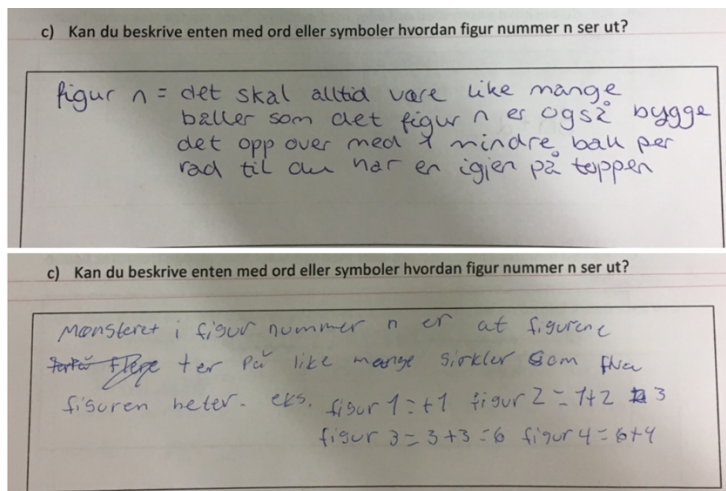 c) Kan du beskrive enten med ord eller symboler hvordan figur nummer n ser ut?
figur n = det skal alltid være like mange
baller som det figur n er også bygge
det opp over med 1 mindre ball per
rad til du har en igjen på toppen
c) Kan du beskrive enten med ord eller symboler hvordan figur nummer n ser ut?
Mønsteret i figur nummer n er at figurene
ter på like mange sirkler som hva
figuren heter. eks. figur 1 = +1 figur 2 = 1+2 3
figur 3 = 3+3 = 6 figur 4 = 6+4